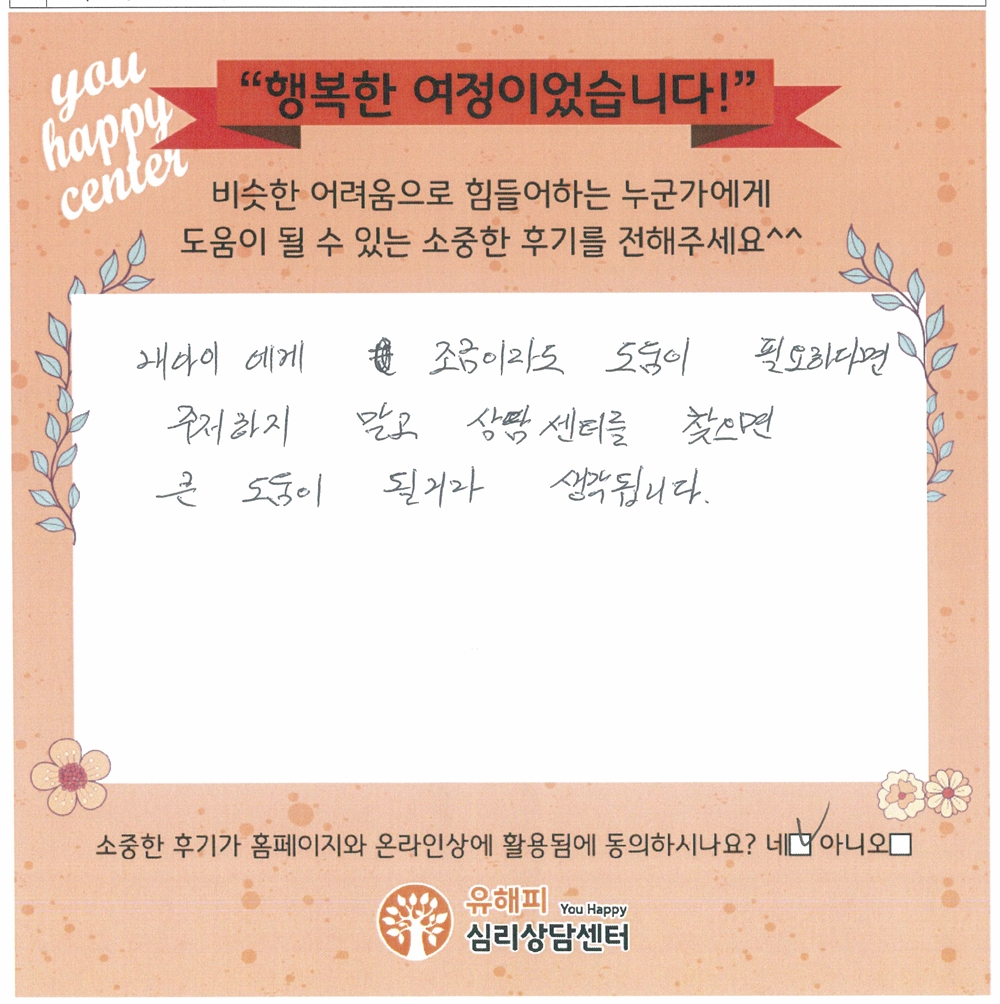 you
happy
center
“행복한 여정이었습니다!”
비슷한 어려움으로 힘들어하는 누군가에게
도움이 될 수 있는 소중한 후기를 전해주세요^^
내아이 에게 조금이라도 도움이 필요하다면
주저하지 말고 상담 센터를 찾으면
큰 도움이 될거라 생각됩니다.
소중한 후기가 홈페이지와 온라인상에 활용됨에 동의하시나요? 네 아니오
유해피 You Happy
심리상담센터